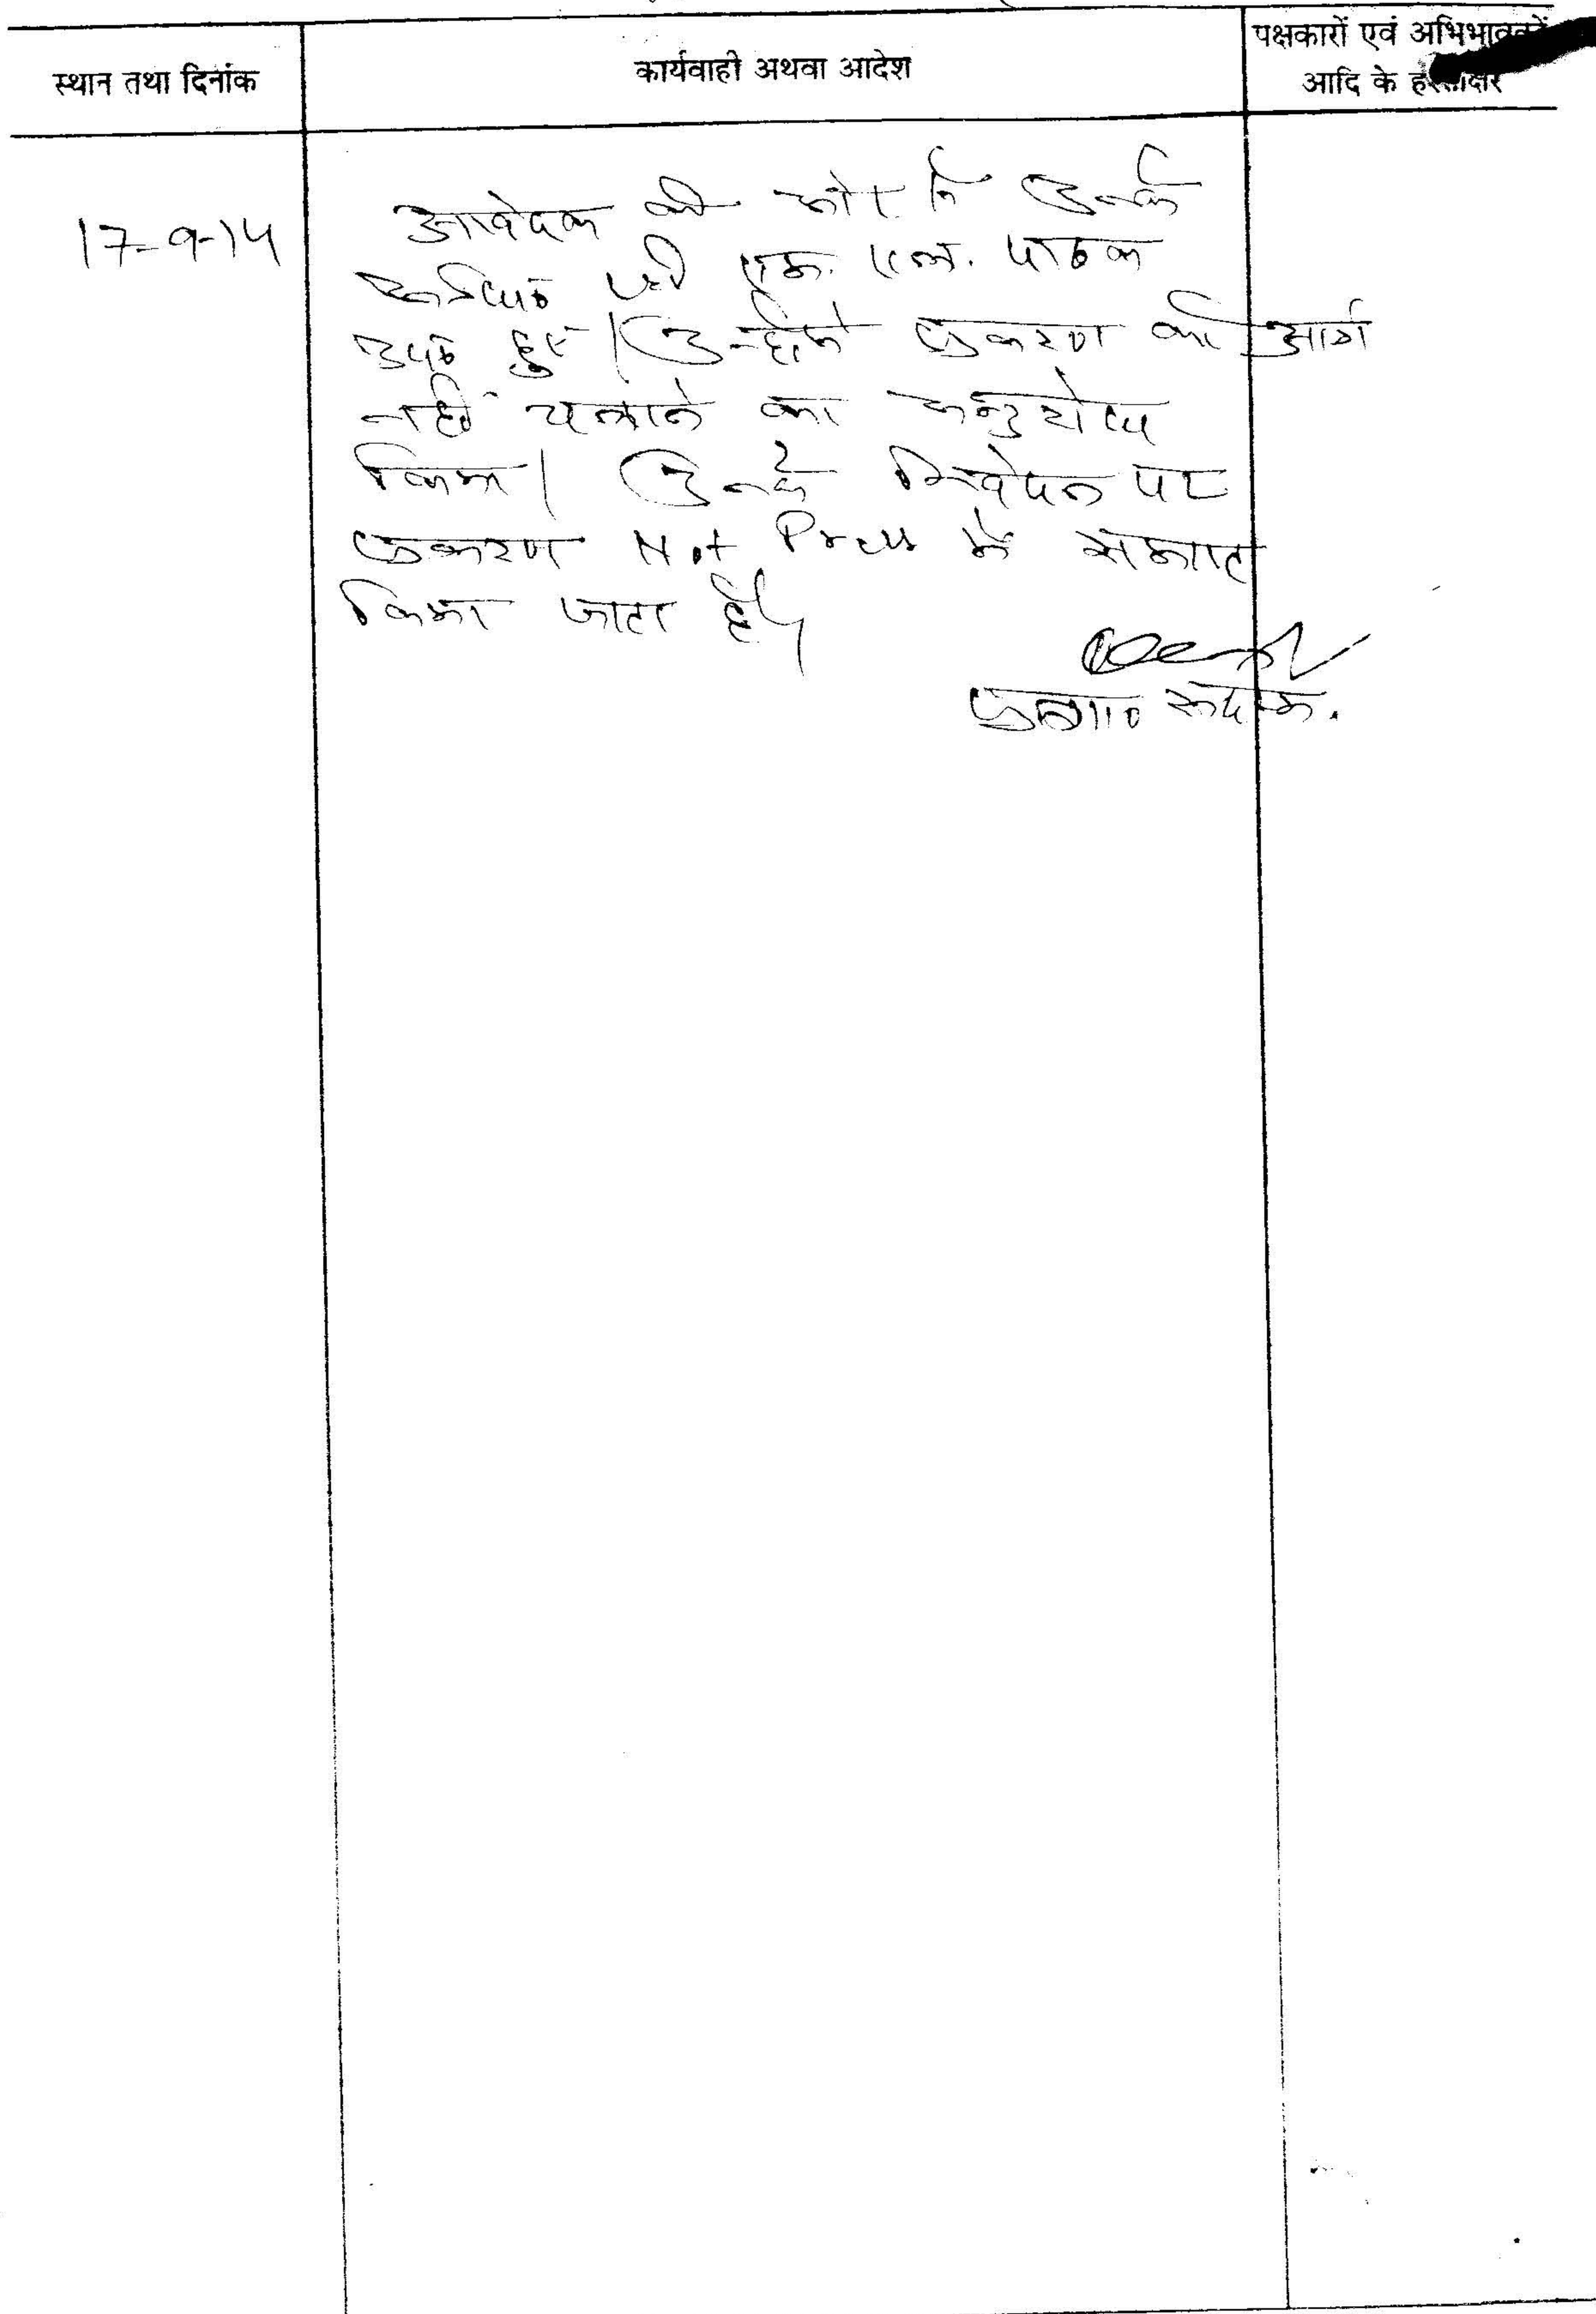 स्थान तथा दिनांक
कार्यवाही अथवा आदेश
पक्षकारों एवं अभिभावकों
आदि के हस्ताक्षर
17-9-14
आवेदक की ओर से उनके
अभिभा0 श्री एम. एल. पाठक
उप0 हुए। उन्होंने प्रकरण को आगे
नहीं चलाने का अनुरोध
किया। उनके निवेदन पर
प्रकरण Not Press में समाप्त
किया जाता है।
सदस्य.